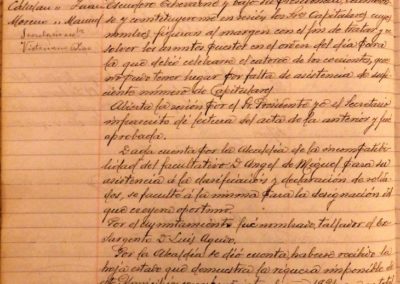 Catalan " Juan
Moreno " Manuel
Secretario
Victoriano
Escudero Echevarria y bajo su Presidencia,
se y constituyeron en sesion los tres Capitulares cuyos
nombres figuran al margen con el fin de tratar y re-
solver los asuntos puestos en el orden del dia para
la que debió celebrarse el catorce de los corrientes, que
no pudo tener lugar por falta de asistencia de sufi-
ciente número de Capitulares.
Abierta la sesion por el Sr Presidente yo el Secretario
infrascrito dí lectura del acta de la anterior y fué
aprobada.
Dada cuenta por la Alcaldia de la incompatibi-
lidad del facultativo D. Angel de Miguel para su
asistencia á la clasificacion y declaracion de solda-
dos, se facultó á la misma para la designacion del
que creyera oportuno.
Por el Ayuntamiento fué nombrado, tallador el ex
Sargento D. Luis
Por la Alcaldia se dió cuenta, haberse recibido la
hoja estado que demuestra la riqueza imponible de